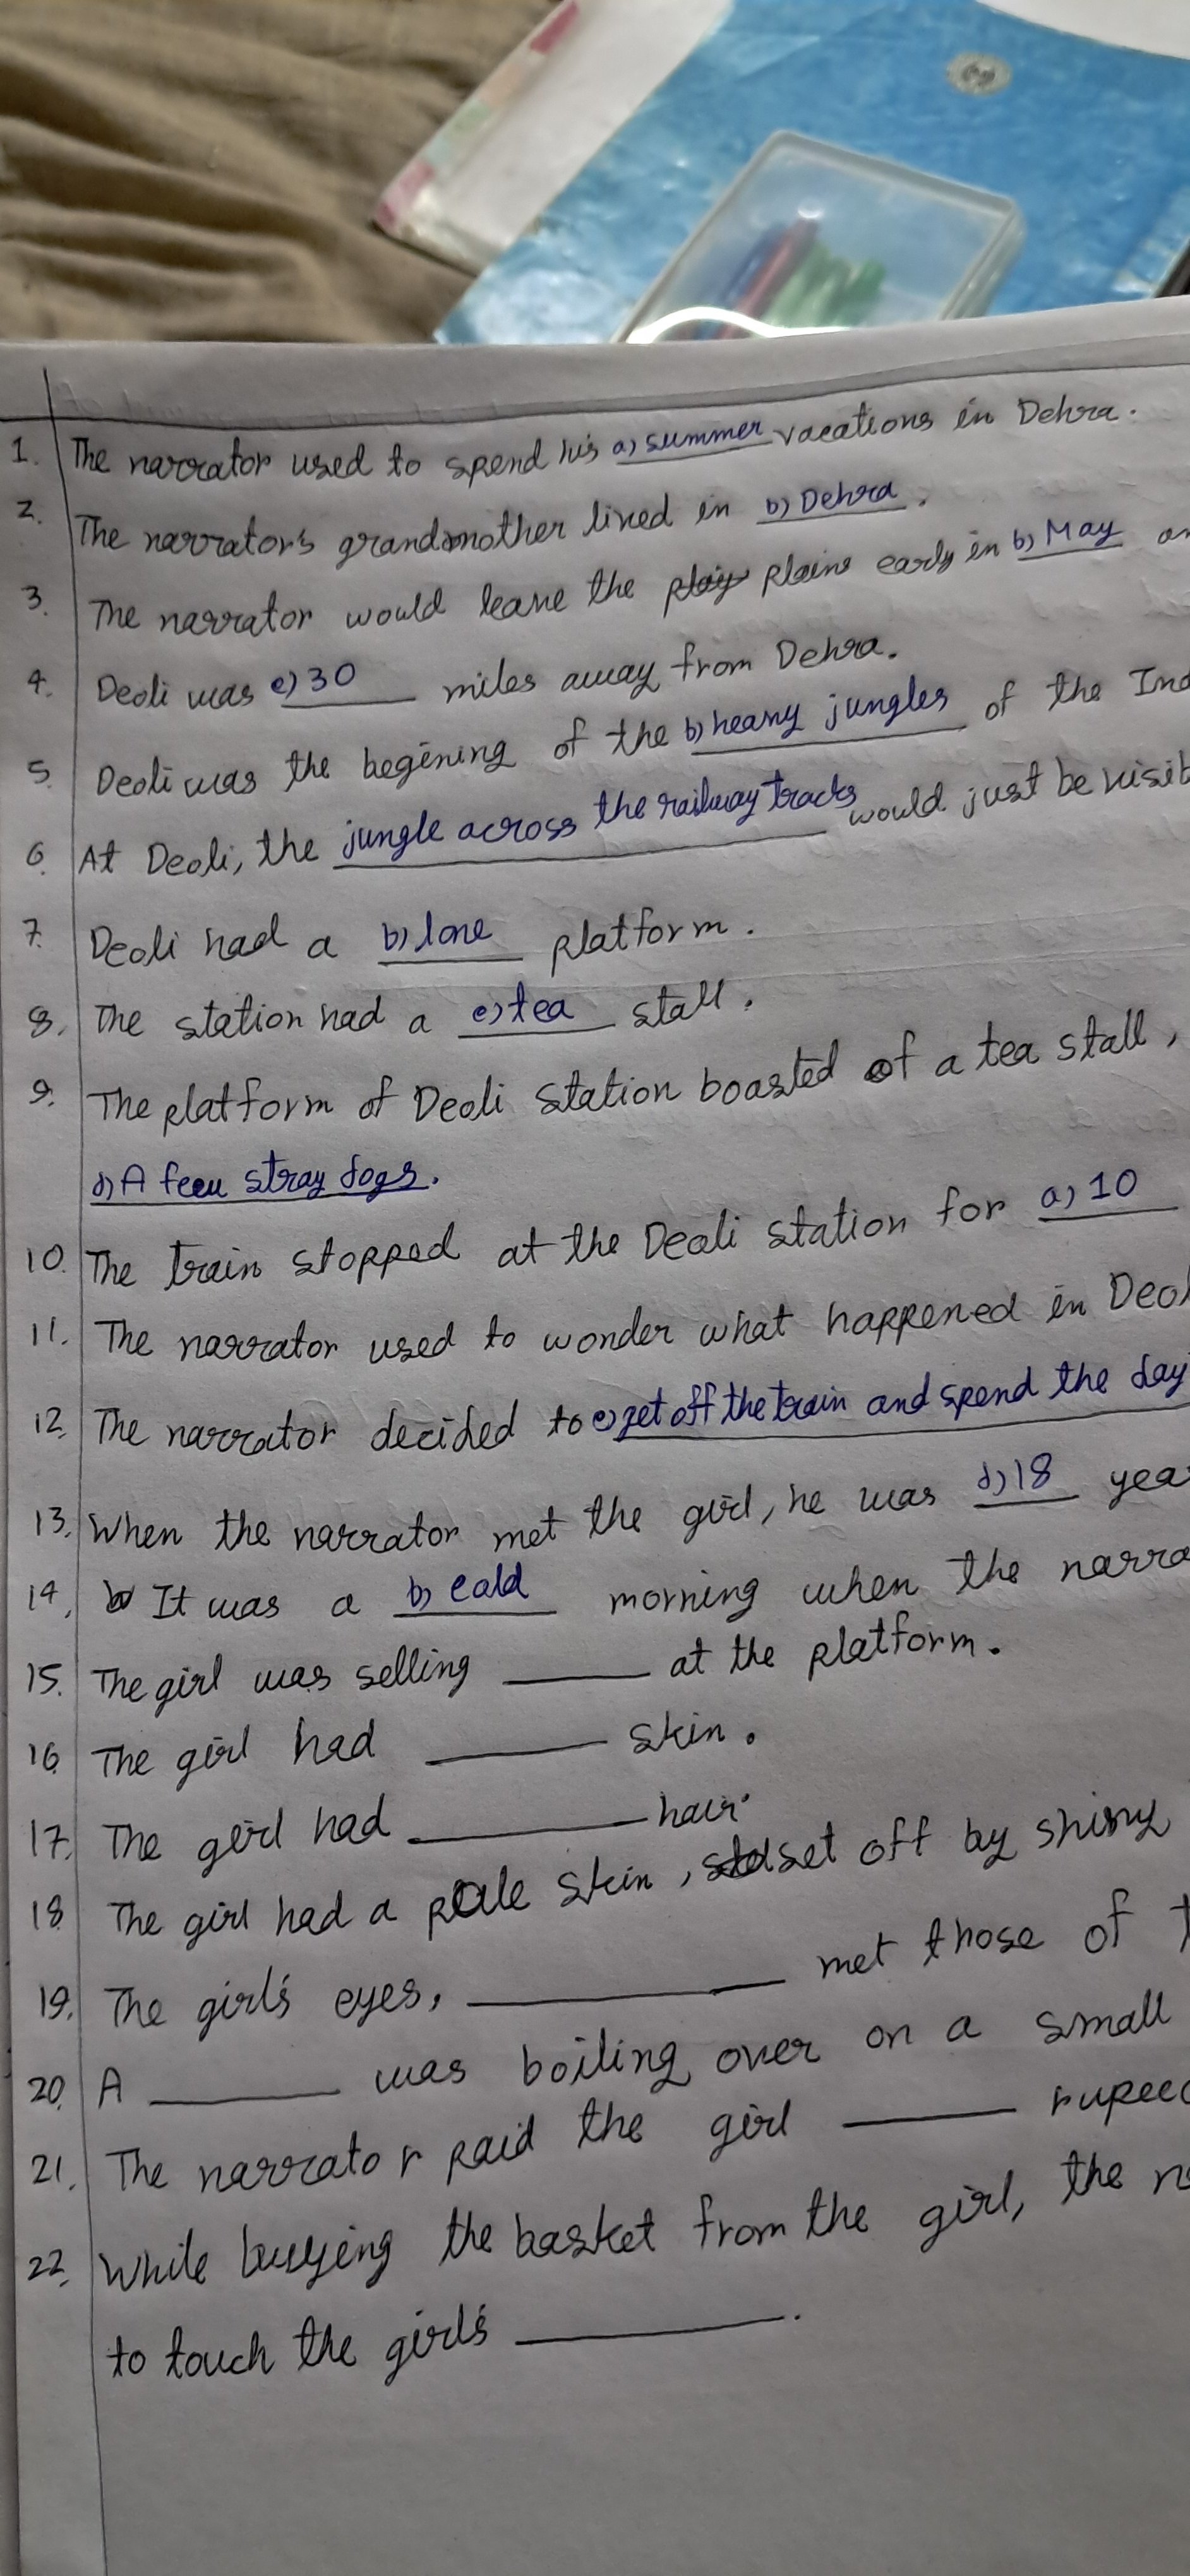 1. The narrator used to spend his a) summer vacations in Dehra.
2. The narrator's grandmother lived in b) Dehra.
3. The narrator would leave the plains early in b) May
4. Deoli was c) 30 miles away from Dehra.
5. Deoli was the begining of the b) heavy jungles of the Ind
6. At Deoli, the jungle across the railway tracks would just be visib
7. Deoli had a b) lone platform.
8. The station had a c) tea stall.
9. The platform of Deoli station boasted of a tea stall,
d) A few stray dogs.
10. The train stopped at the Deoli station for a) 10
11. The narrator used to wonder what happened in Deol
12. The narrator decided to c) get off the train and spend the day
13. When the narrator met the girl, he was d) 18 year
14. It was a b) cold morning when the narra
15. The girl was selling ____ at the platform.
16. The girl had ____ skin.
17. The girl had ____ hair.
18. The girl had a pale skin, set off by shiny
19. The girl's eyes, ____ met those of t
20. A ____ was boiling over on a small
21. The narrator paid the girl ____ rupee
22. While buying the basket from the girl, the n
to touch the girl's ____.